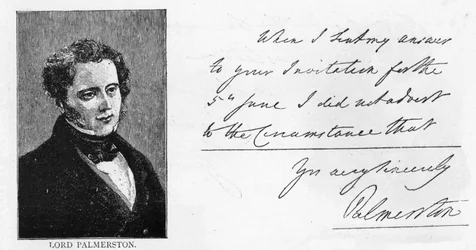 When I sent my answer
to your Invitation for the
5th June I did not advert
to the Circumstance that
Yrs very sincerely
Palmerston
LORD PALMERSTON.